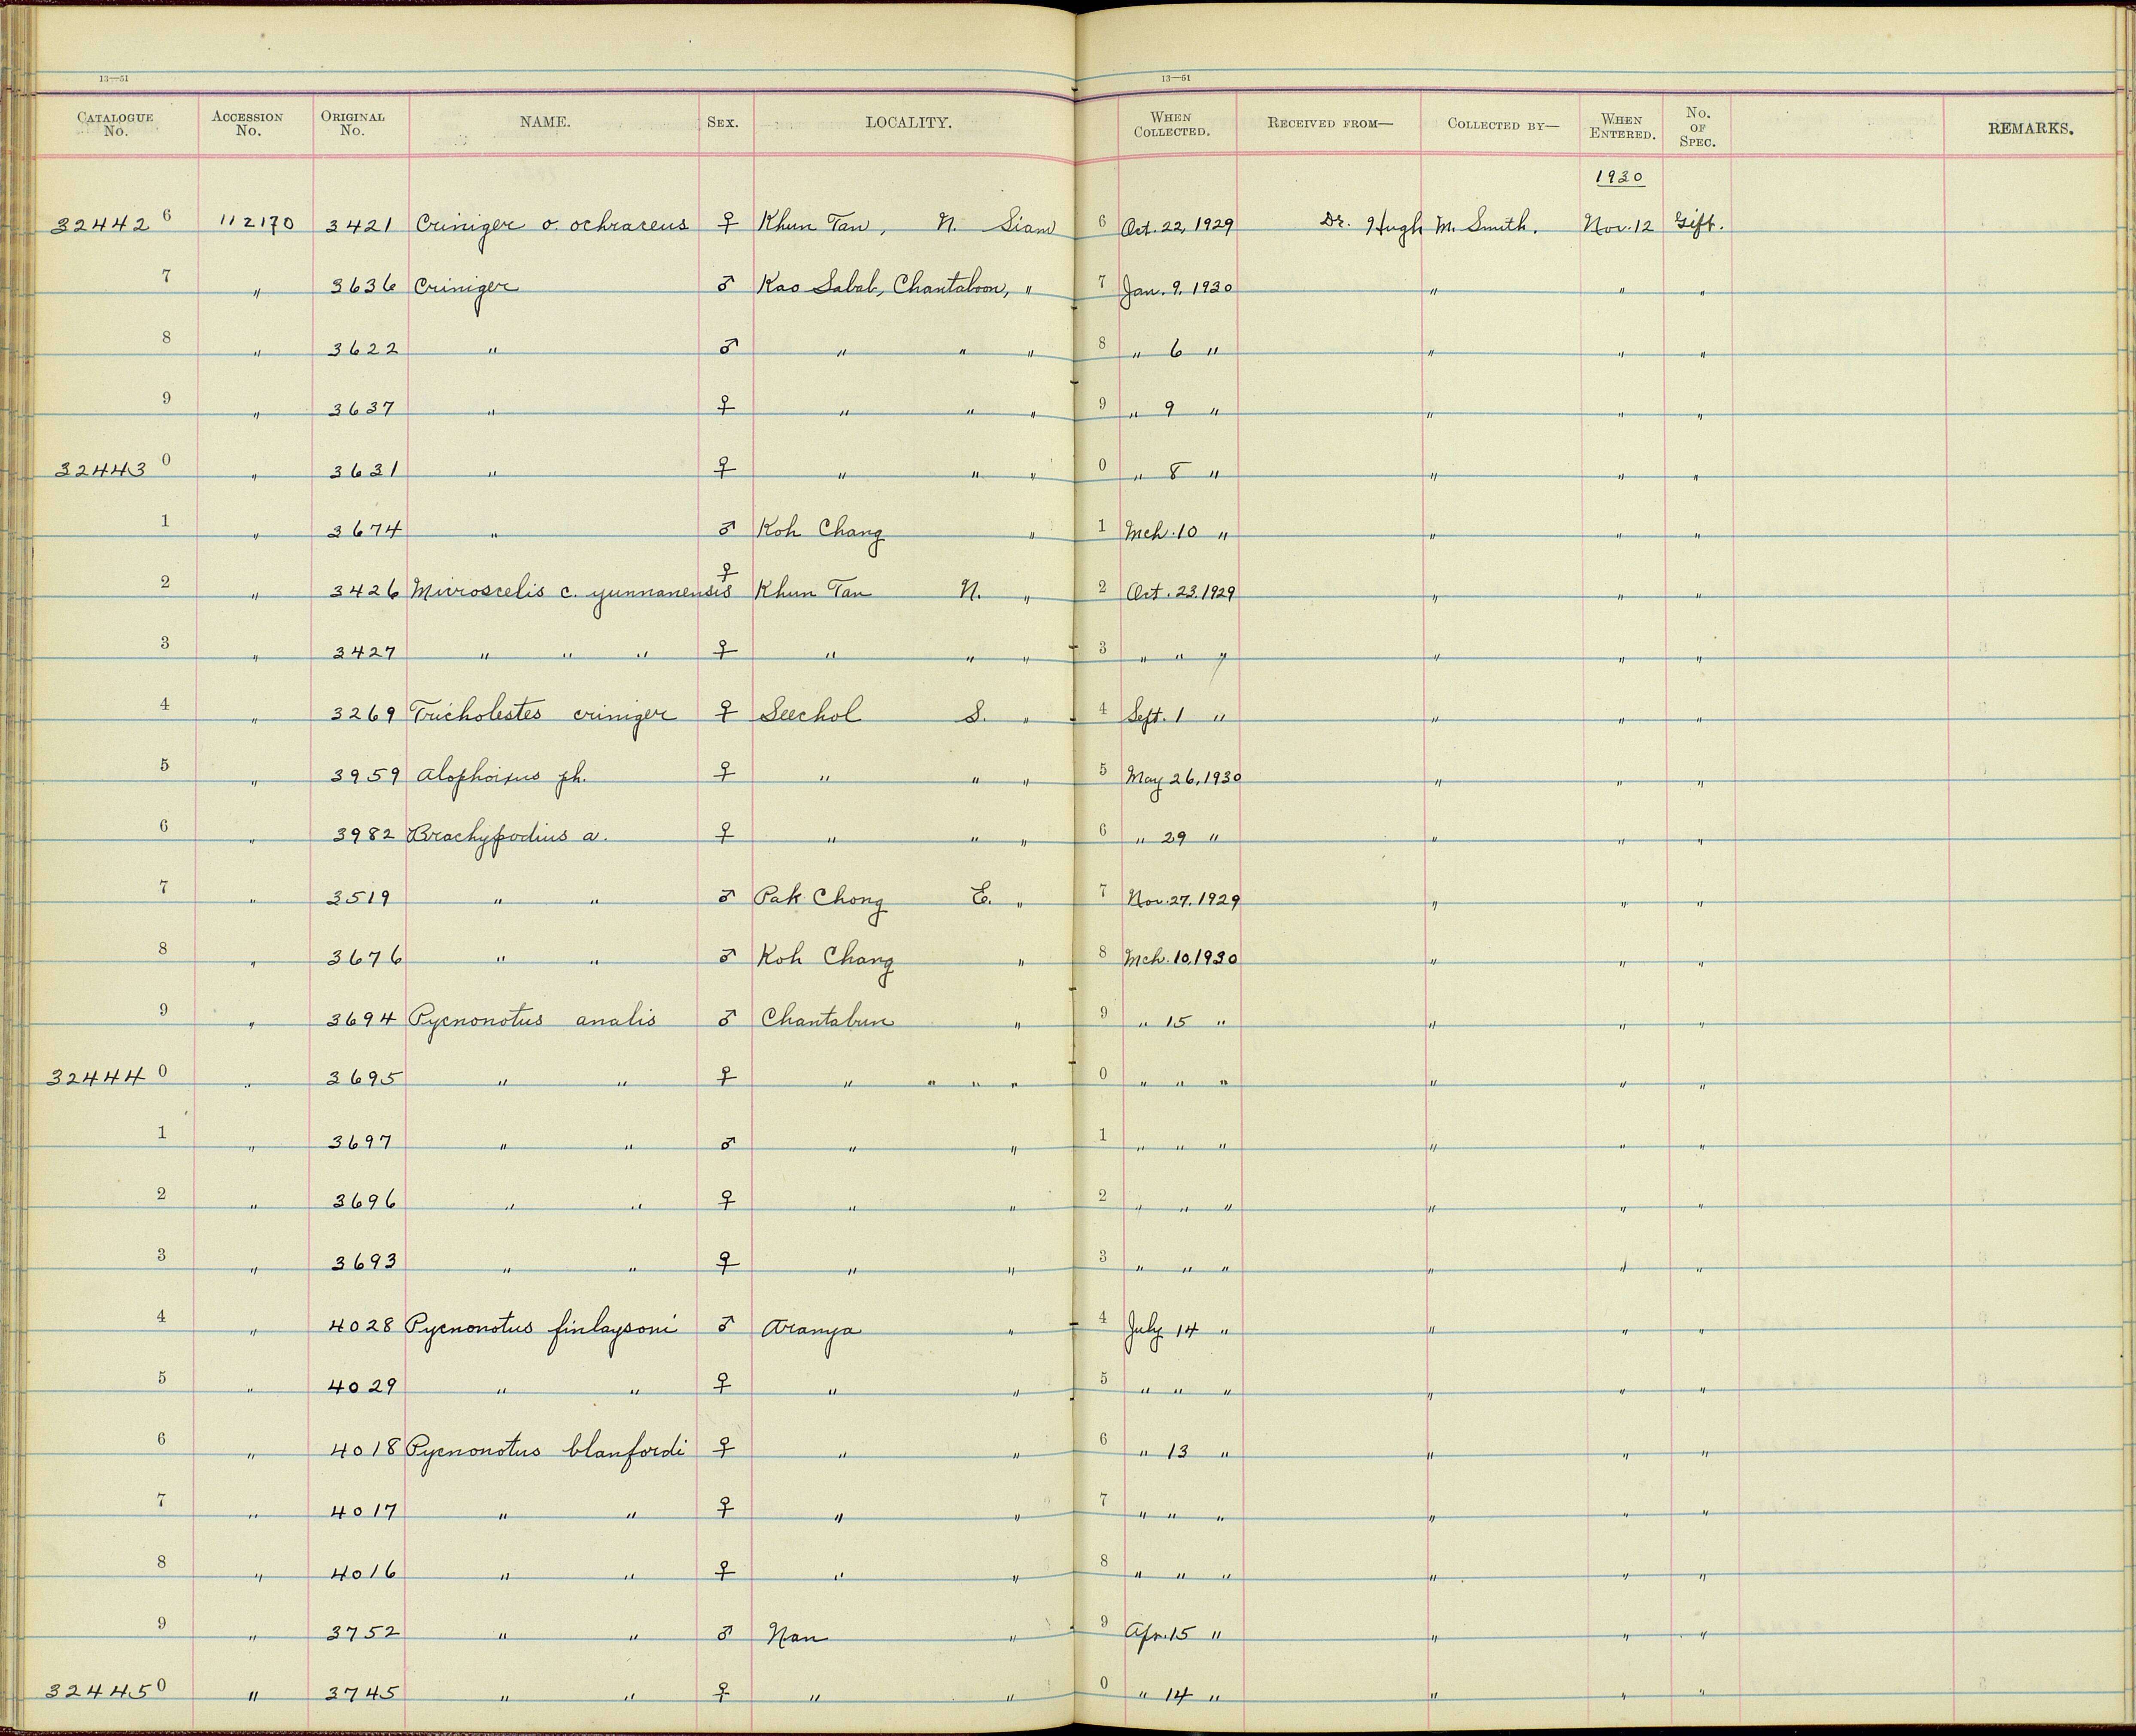 13—51 13—51
CATALOGUE No. ACCESSION No. ORIGINAL No. NAME. SEX. LOCALITY. WHEN COLLECTED. RECEIVED FROM— COLLECTED BY— WHEN ENTERED. No. OF SPEC. REMARKS.
1930
32442 6 112170 3421 Criniger o. ochraceus ♀ Khun Tan, N. Siam 6 Oct. 22, 1929 Dr. Hugh M. Smith. Nov. 12 Gift.
7 " 3636 Criniger ♂ Kao Sabab, Chantaboon, " 7 Jan. 9, 1930 " " "
8 " 3622 " ♂ " " " 8 " 6 " " " "
9 " 3637 " ♀ " " " 9 " 9 " " " "
32443 0 " 3631 " ♀ " " " 0 " 8 " " " "
1 " 3674 " ♂ Koh Chang " 1 Mch. 10 " " " "
2 " 3426 Microscelis c. yunnanensis ♀ Khun Tan N. " 2 Oct. 23, 1929 " " "
3 " 3427 " " " ♀ " " " 3 " " " " " "
4 " 3269 Tricholestes criniger ♀ Seechol S. " 4 Sept. 1 " " " "
5 " 3959 Alophoixus ph. ♀ " " " 5 May 26, 1930 " " "
6 " 3982 Brachypodius a. ♀ " " " 6 " 29 " " " "
7 " 3519 " " ♂ Pak Chong E. " 7 Nov. 27, 1929 " " "
8 " 3676 " " ♂ Koh Chang " 8 Mch. 10, 1930 " " "
9 " 3694 Pycnonotus analis ♂ Chantabun " 9 " 15 " " " "
32444 0 " 3695 " " ♀ " " " " 0 " " " " " "
1 " 3697 " " ♂ " " 1 " " " " " "
2 " 3696 " " ♀ " " 2 " " " " " "
3 " 3693 " " ♀ " " 3 " " " " " "
4 " 4028 Pycnonotus finlaysoni ♂ Aranya " 4 July 14 " " " "
5 " 4029 " " ♀ " " 5 " " " " " "
6 " 4018 Pycnonotus blanfordi ♀ " " 6 " 13 " " " "
7 " 4017 " " ♀ " " 7 " " " " " "
8 " 4016 " " ♀ " " 8 " " " " " "
9 " 3752 " " ♂ Nan " 9 Apr. 15 " " " "
32445 0 " 3745 " " ♀ " " 0 " 14 " " " "